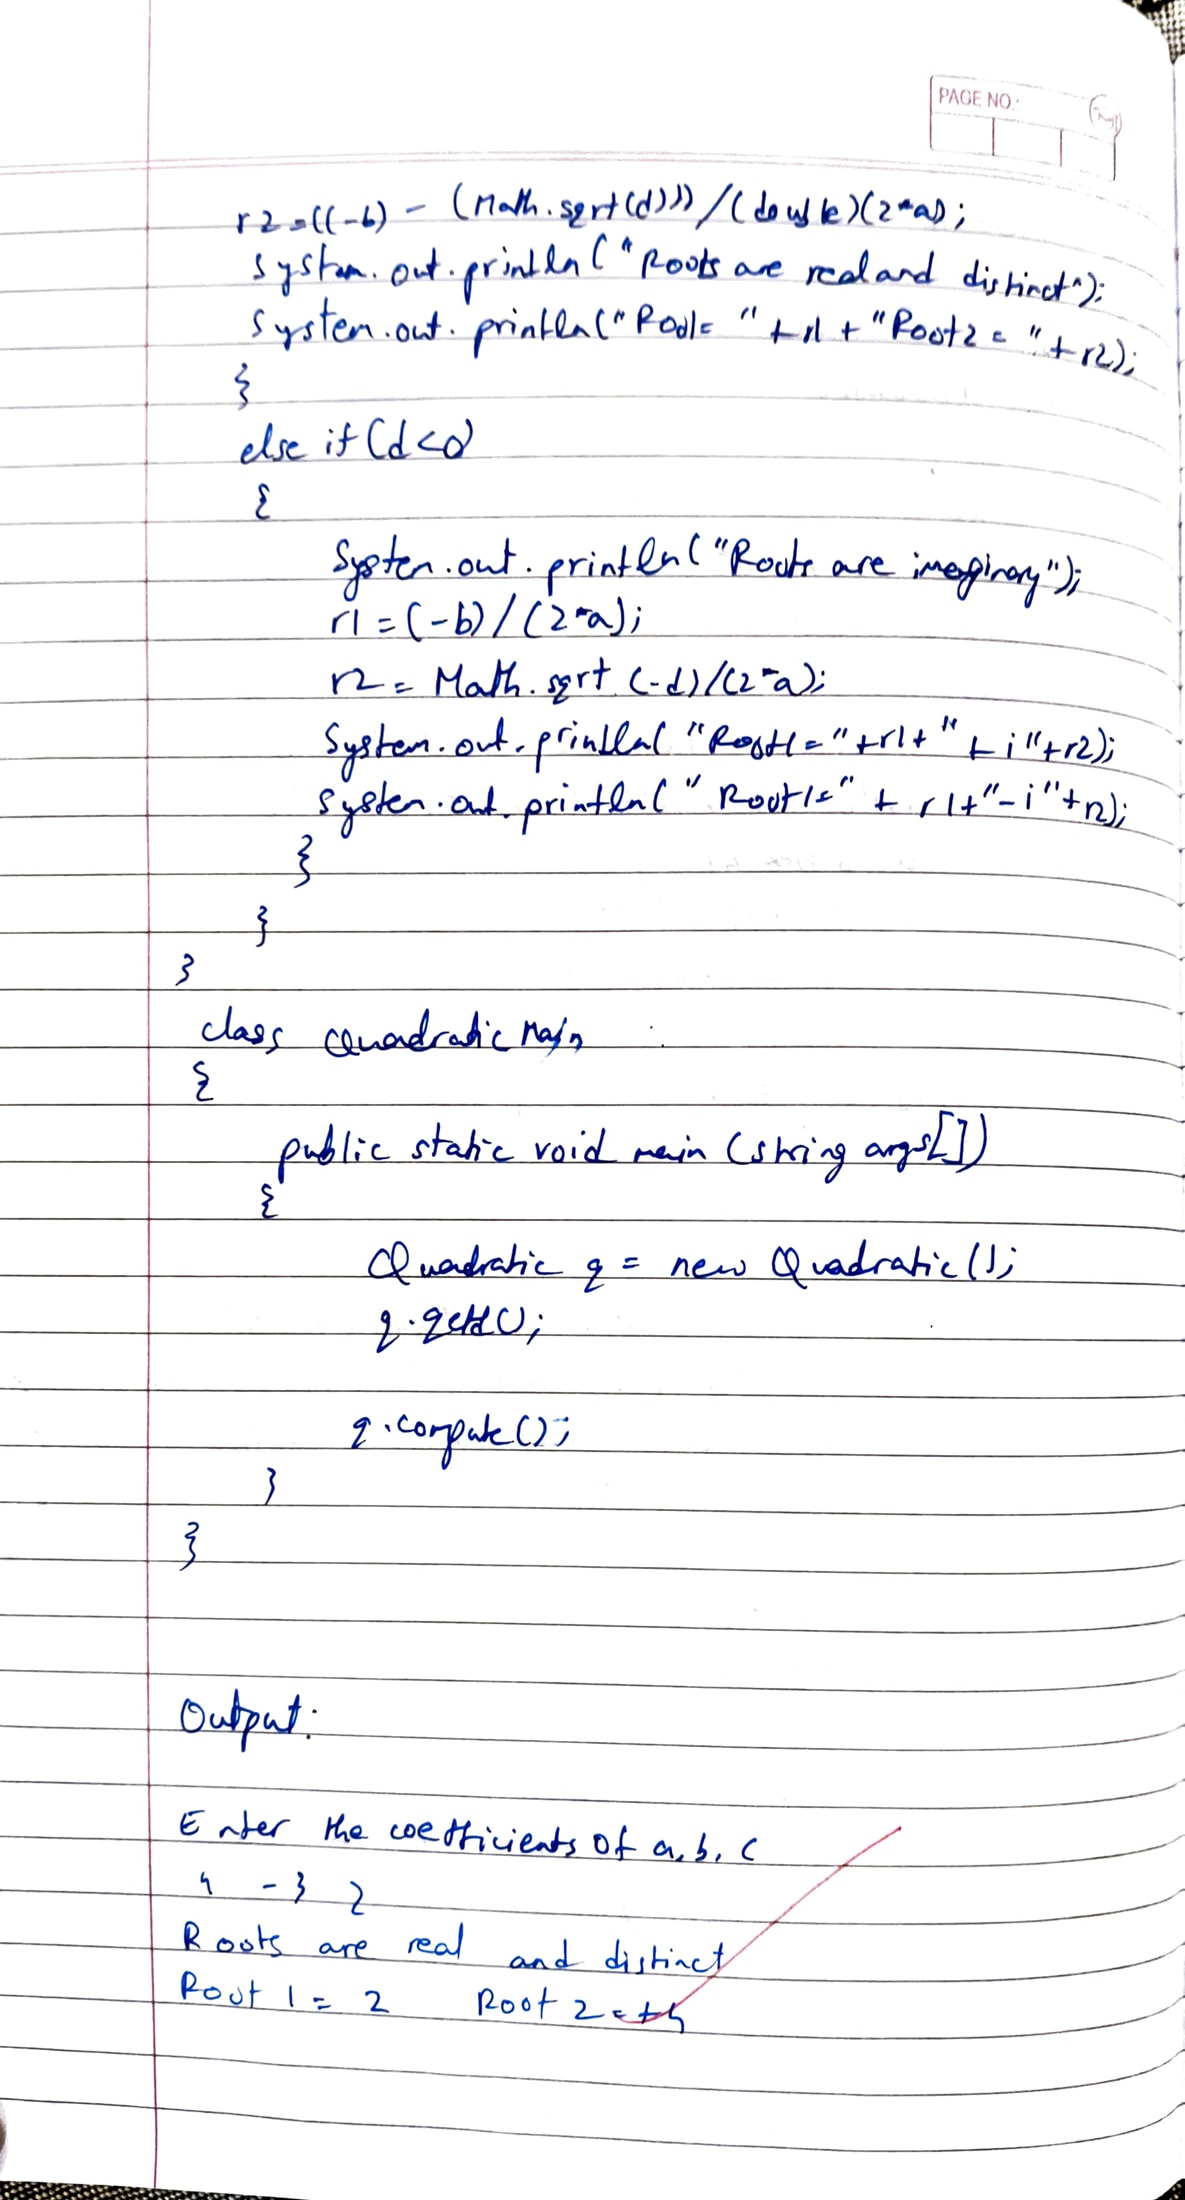 PAGE NO.:
r2=((-b) - (Math.sqrt(d)))/(double)(2*a);
System.out.println("Roots are real and distinct");
System.out.println("Root1= " + r1 + "Root2 = "+r2);
}
else if (d<0)
{
System.out.println("Roots are imaginary");
r1 = (-b)/(2*a);
r2 = Math.sqrt(-d)/(2*a);
System.out.println("Root1="+r1+" + i"+r2);
System.out.println("Root1=" + r1+"-i"+r2);
}
}
}
class QuadraticMain
{
public static void main (string args[])
{
Quadratic q = new Quadratic();
q.getd();
q.compute();
}
}
Output:
Enter the coefficients of a, b, c
4 -3 2
Roots are real and distinct
Root 1 = 2 Root 2 =